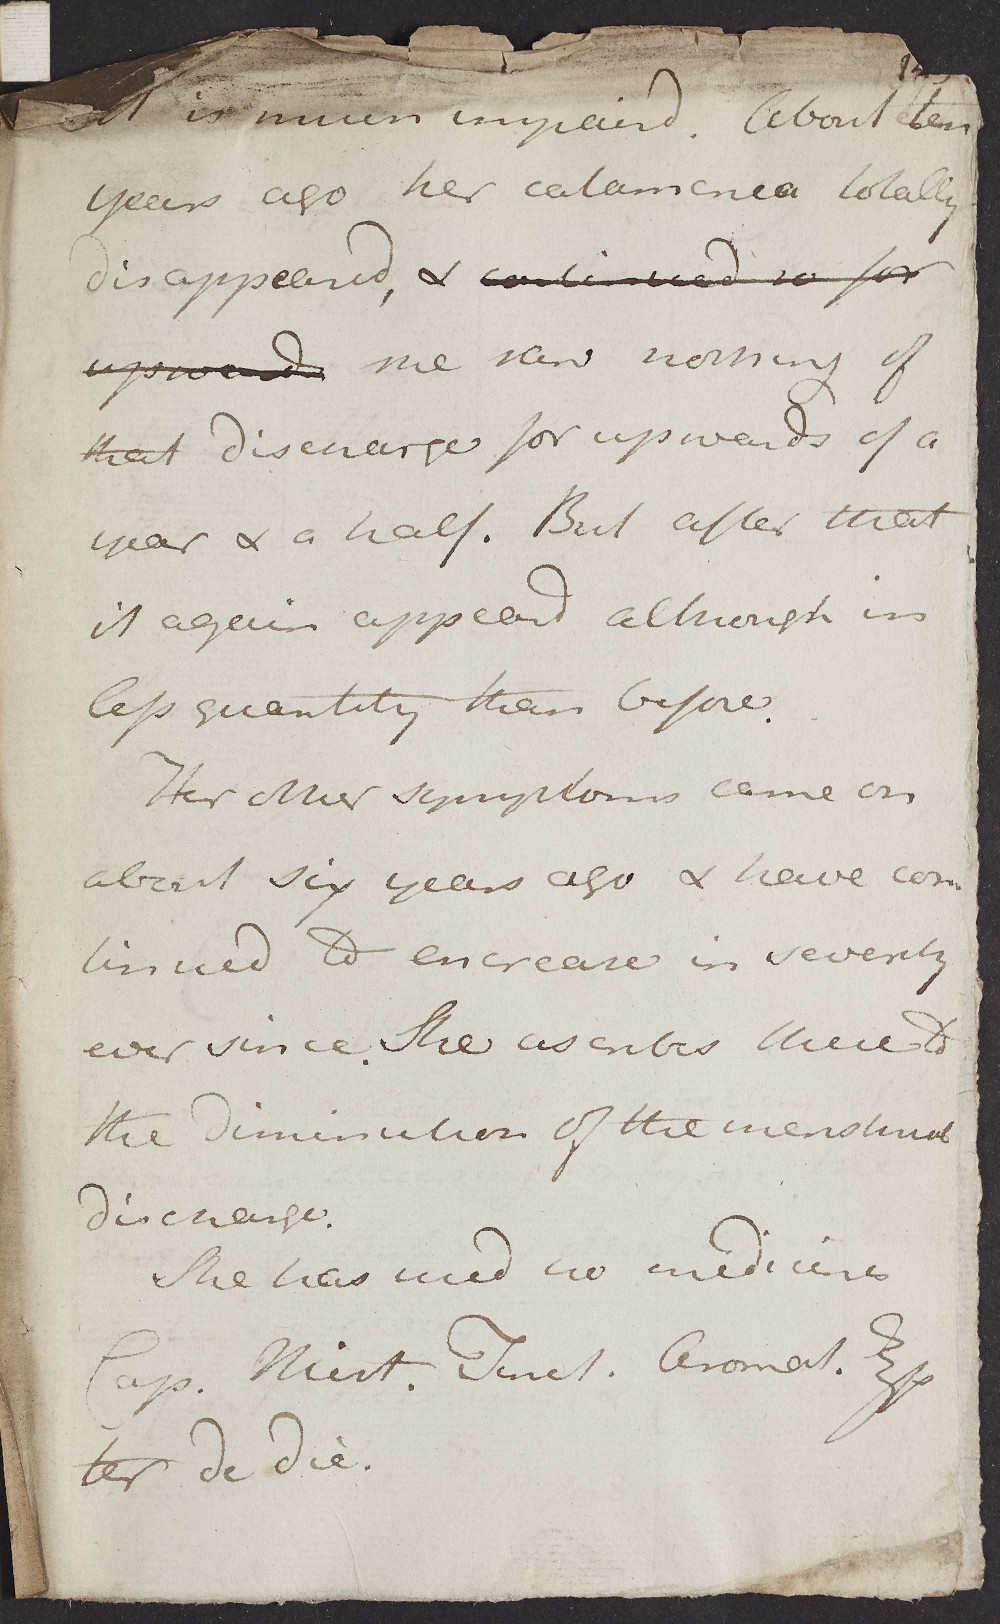 it is much impaird. About ten
years ago her catamenea totally
disappeared, & continued so for
upwards she saw nothing of
that discharge for upwards of a
year & a half. But after that
it again appeard although in
less quantity than before.
Her other symptoms came on
about six years ago & have con-
tinued to encrease in severity
ever since. She ascribes these to
the diminution of the menstrual
discharge.
She has used no medicines
Cap. Mist. Tinct. Aromat. ℥ss
ter de die.